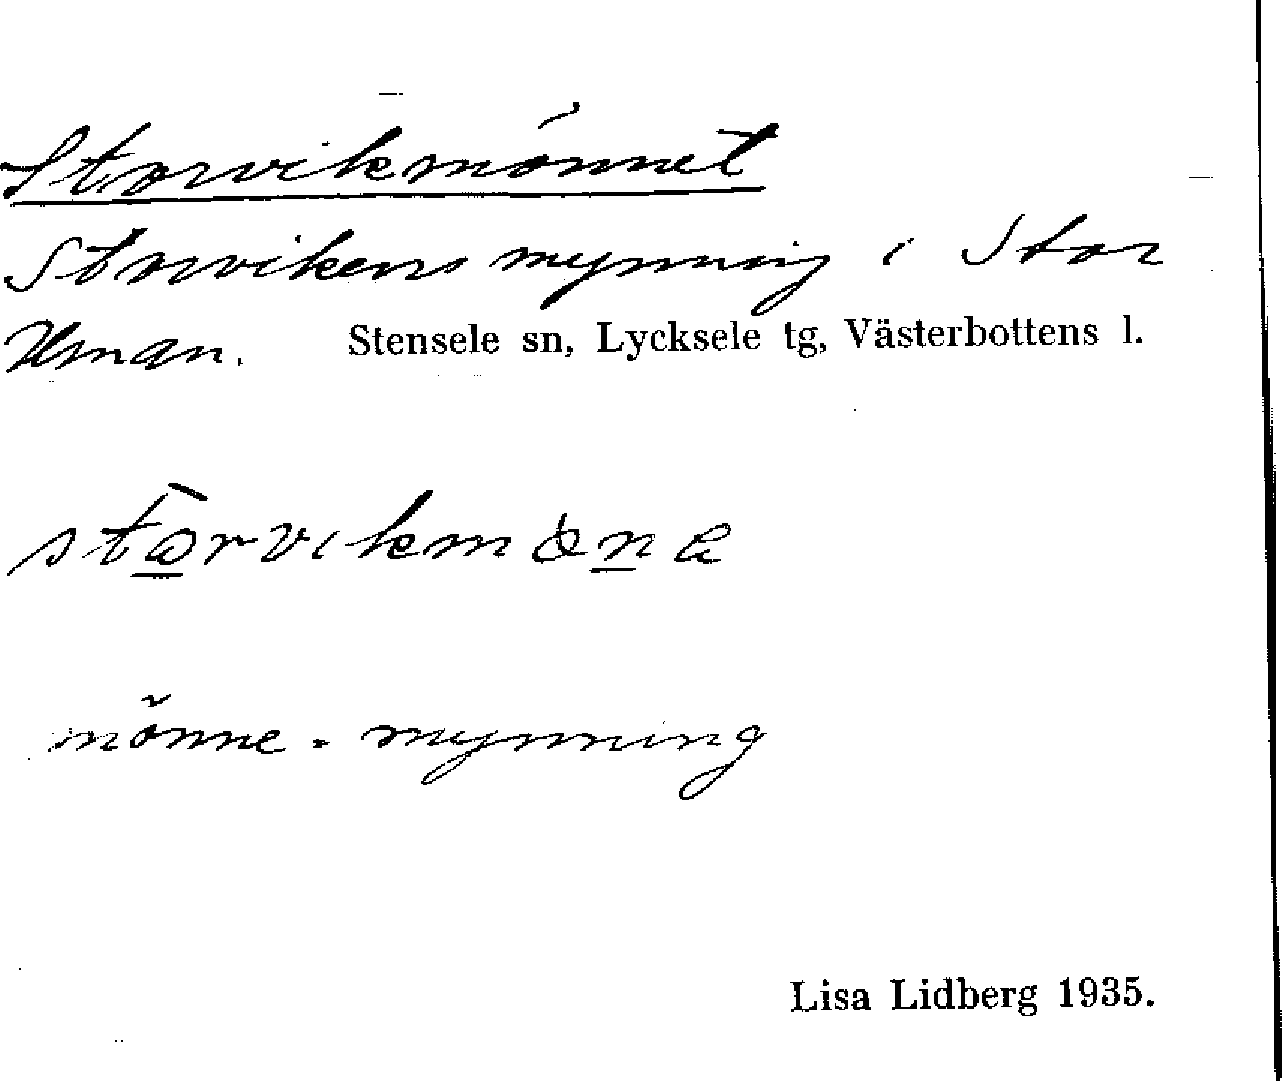 Storvikmönnet
Storvikens mynning i Stor
Uman. Stensele sn, Lycksele tg, Västerbottens l.
mönne = mynning
Lisa Lidberg 1935.